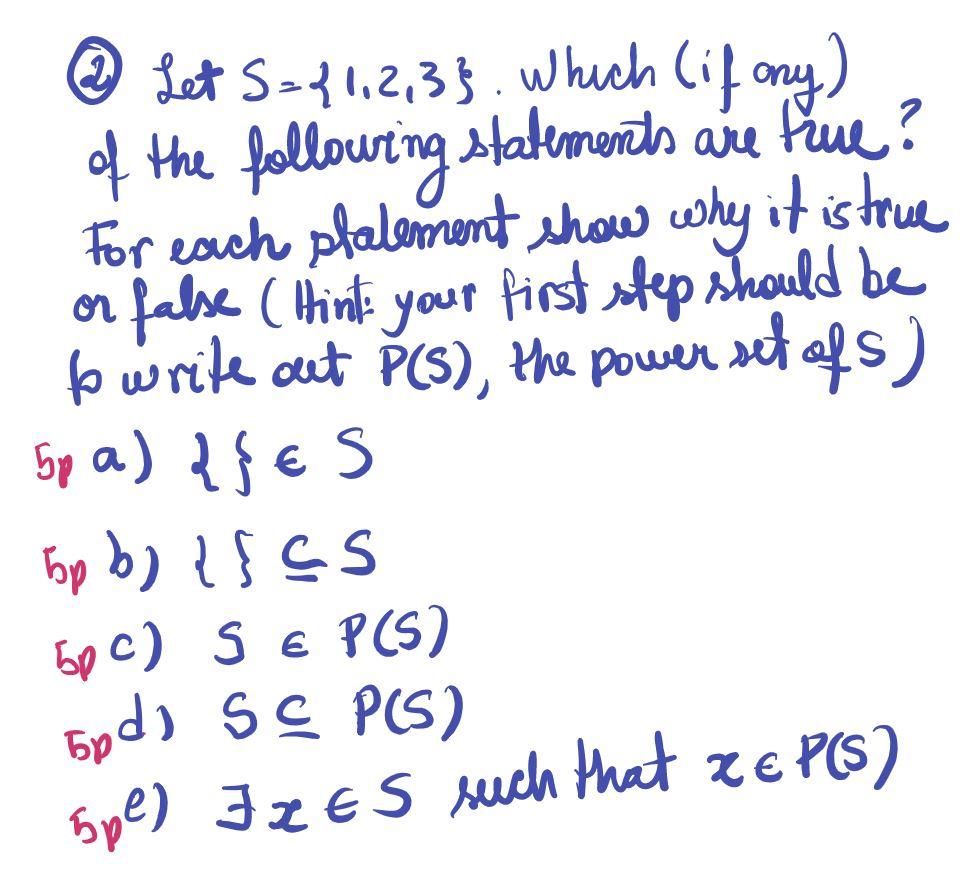 ② Let S={1,2,3}. Which (if any)
of the following statements are true?
For each statement show why it is true
or false (Hint: your first step should be
to write out P(S), the power set of S)
5p a) { } ∈ S
5p b) { } ⊆ S
5p c) S ∈ P(S)
5p d) S ⊆ P(S)
5p e) ∃ x ∈ S such that x ∈ P(S)